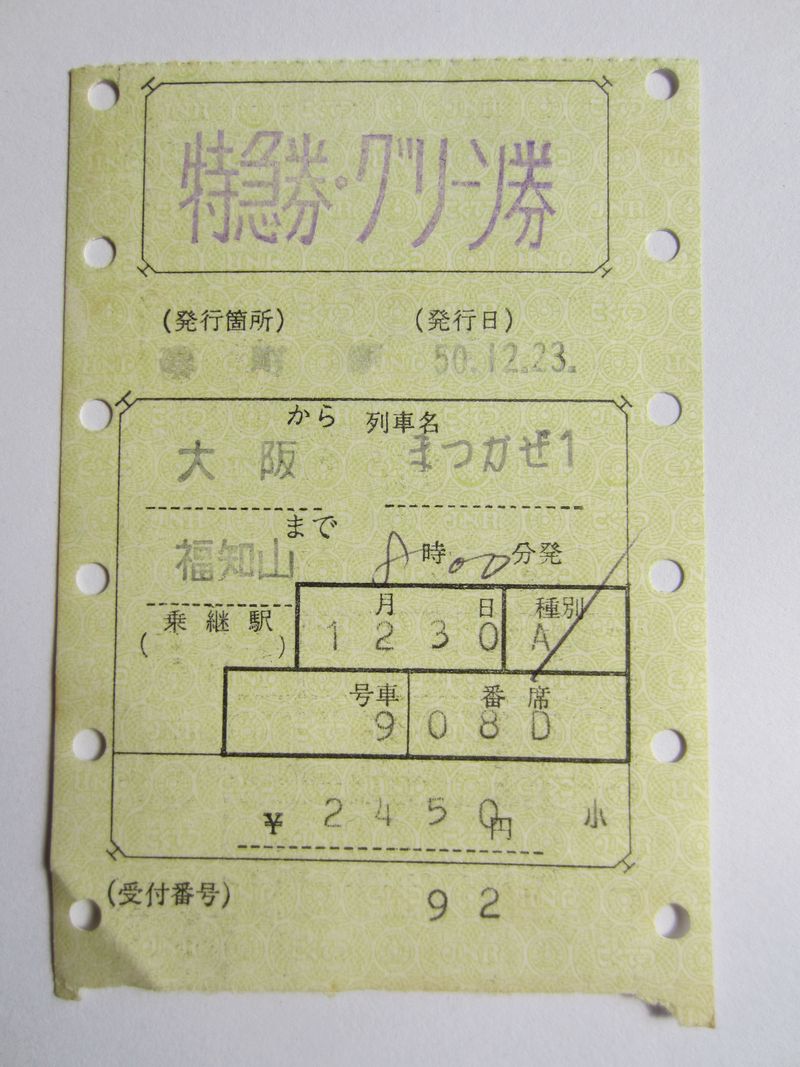 特急券・グリーン券
(発行箇所) (発行日)
50.12.23.
から 列車名
大阪 まつかぜ1
まで
福知山 8時00分発
月 日 種別
乗継駅
( ) 1230 A
号車 番席
9 08D
¥2450円 小
(受付番号)
92